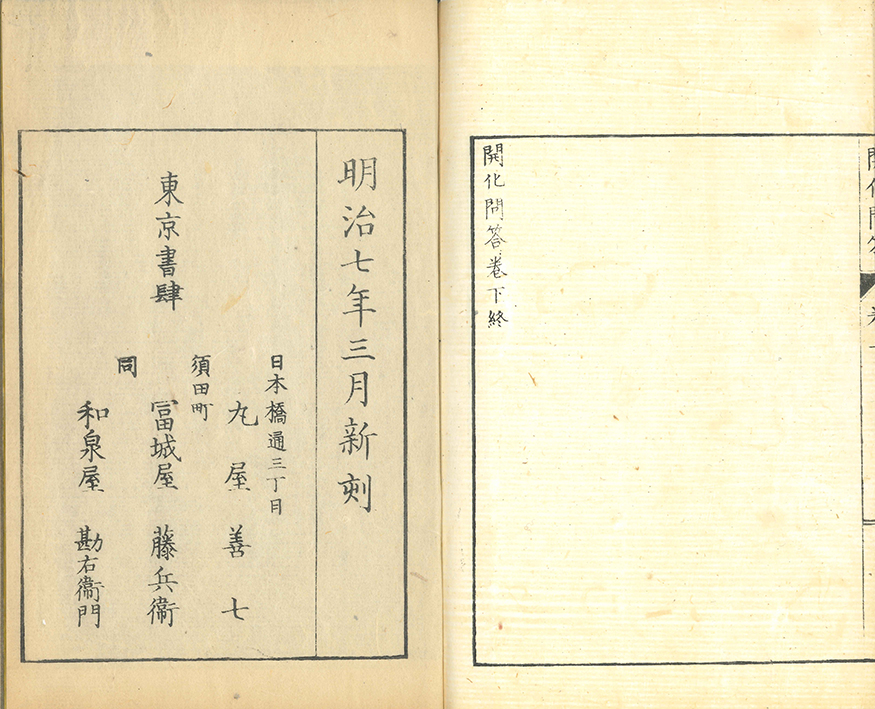 開化問答
開化問答卷下終
明治七年三月新刻
東京書肆
日本橋通三丁目
丸屋善七
須田町
冨城屋藤兵衞
同
和泉屋勘右衞門